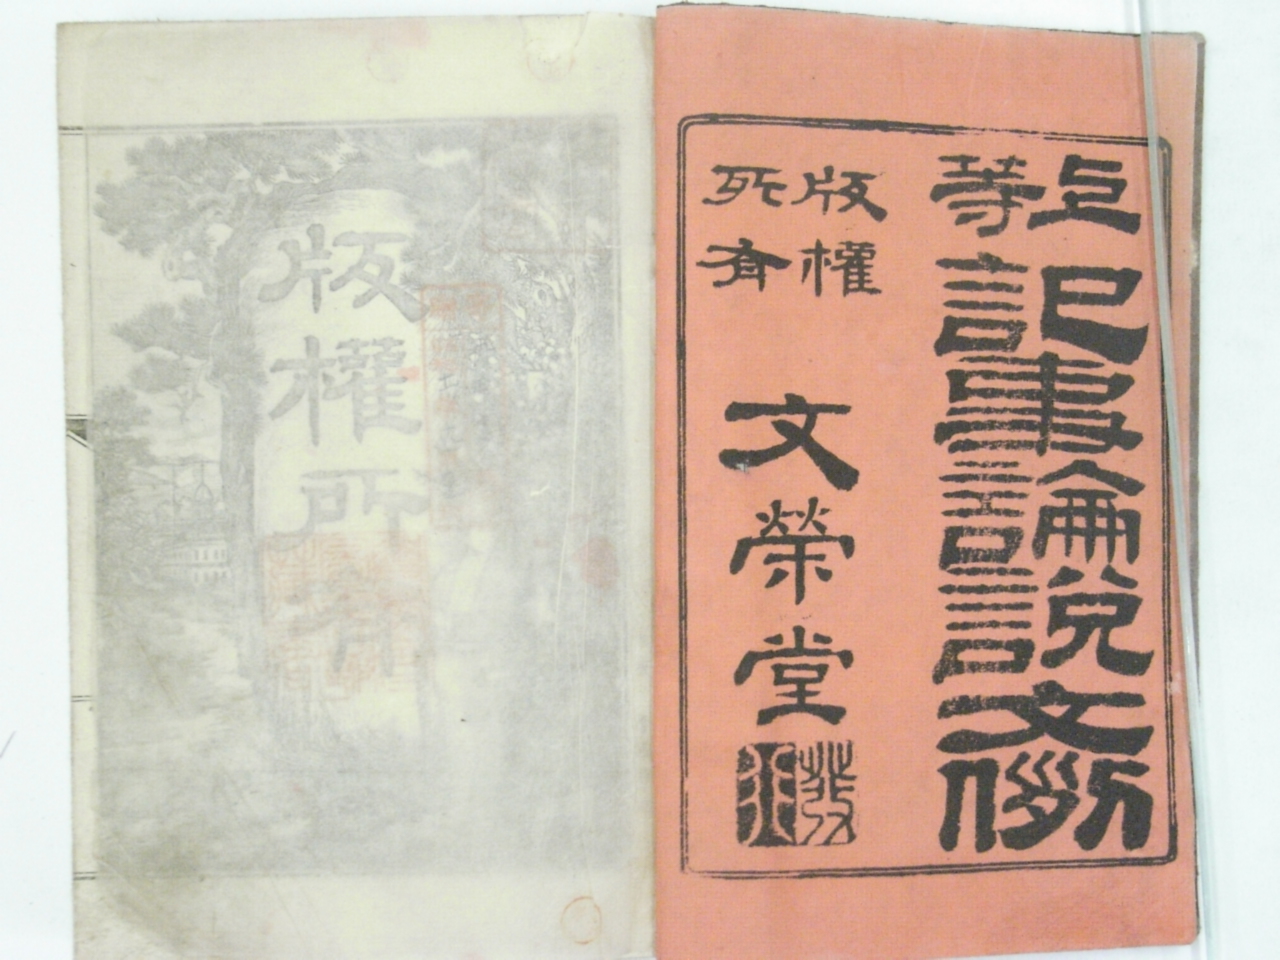 上等
記事論說文例
版權
所有
文榮堂
發行
版權所有